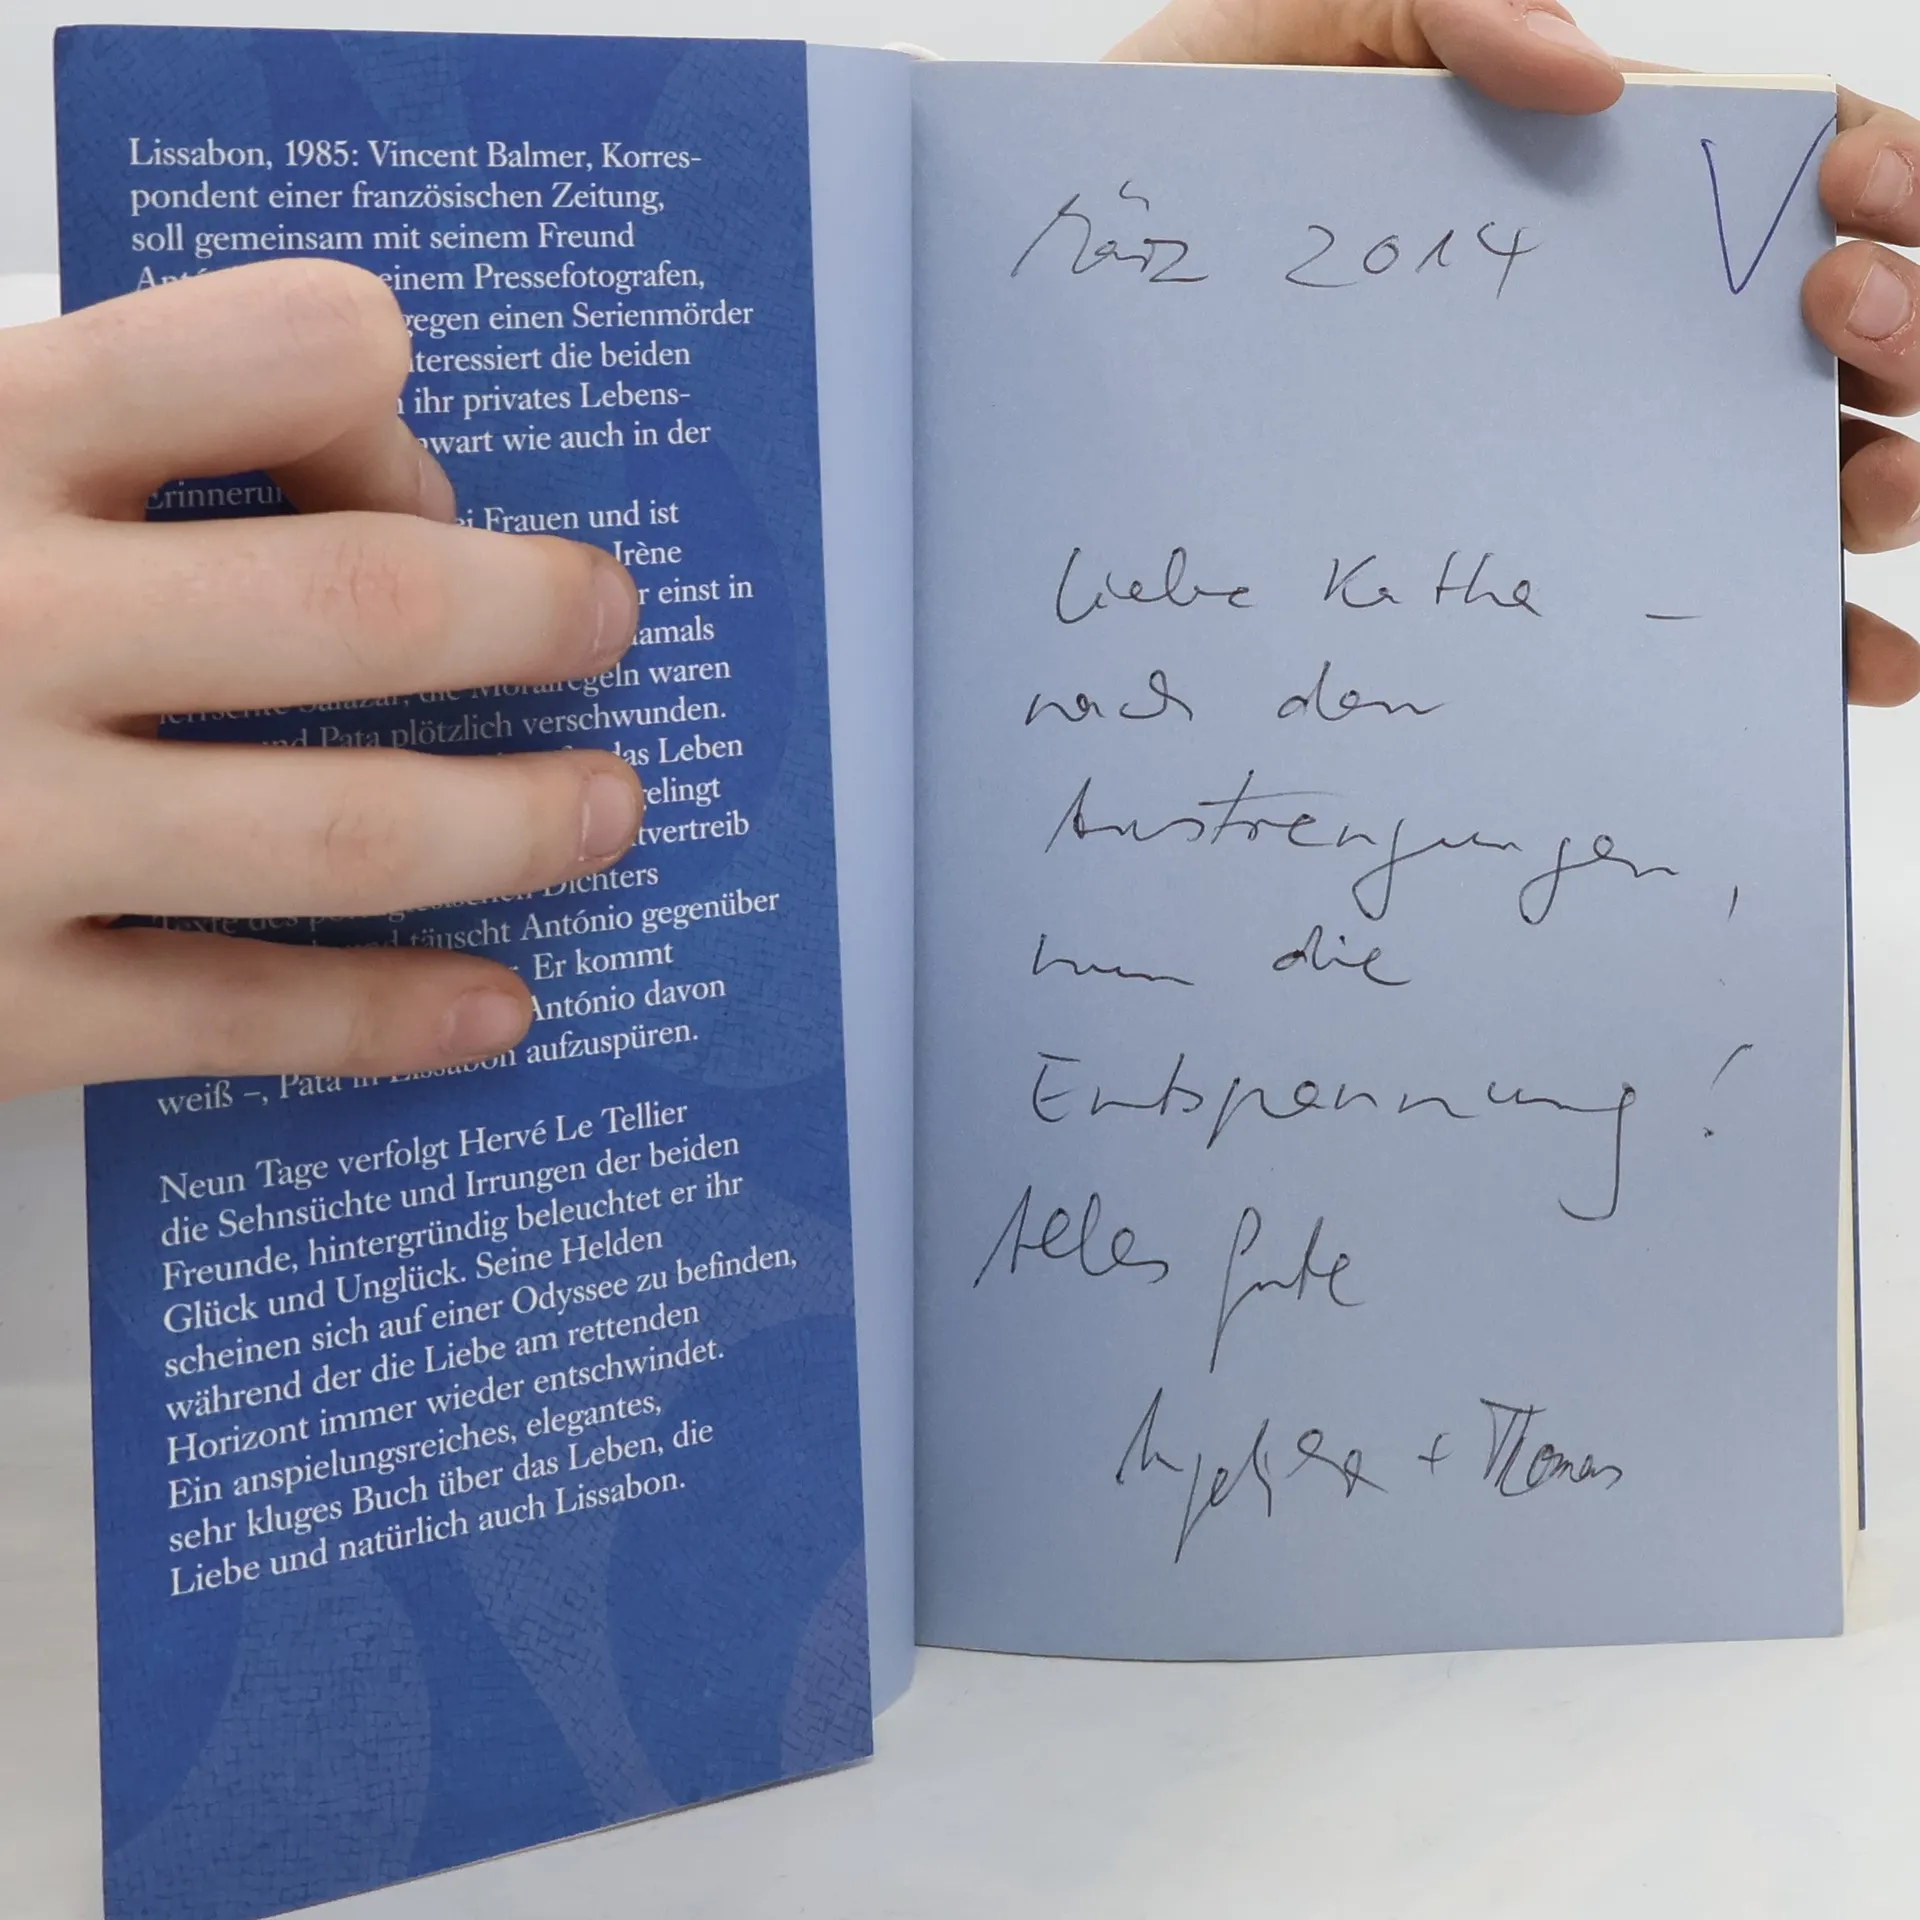 Lissabon, 1985: Vincent Balmer, Korres-
pondent einer französischen Zeitung,
soll gemeinsam mit seinem Freund
einem Pressefotografen,
gegen einen Serienmörder
die beiden
ihr privates Lebens-
wie auch in der
Frauen und ist
Irène
einst in
waren
Pata plötzlich verschwunden.
das Leben
Dichters
täuscht António gegenüber
Er kommt
António davon
aufzuspüren.
weiß –, Pata in Lissabon
Neun Tage verfolgt Hervé Le Tellier
die Sehnsüchte und Irrungen der beiden
Freunde, hintergründig beleuchtet er ihr
Glück und Unglück. Seine Helden
scheinen sich auf einer Odyssee zu befinden,
während der die Liebe am rettenden
Horizont immer wieder entschwindet.
Ein anspielungsreiches, elegantes,
sehr kluges Buch über das Leben, die
Liebe und natürlich auch Lissabon.
März 2014
V
Liebe Kathe –
nach den
Anstrengungen,
nun die
Entspannung!
Alles Gute
Angelika + Thomas